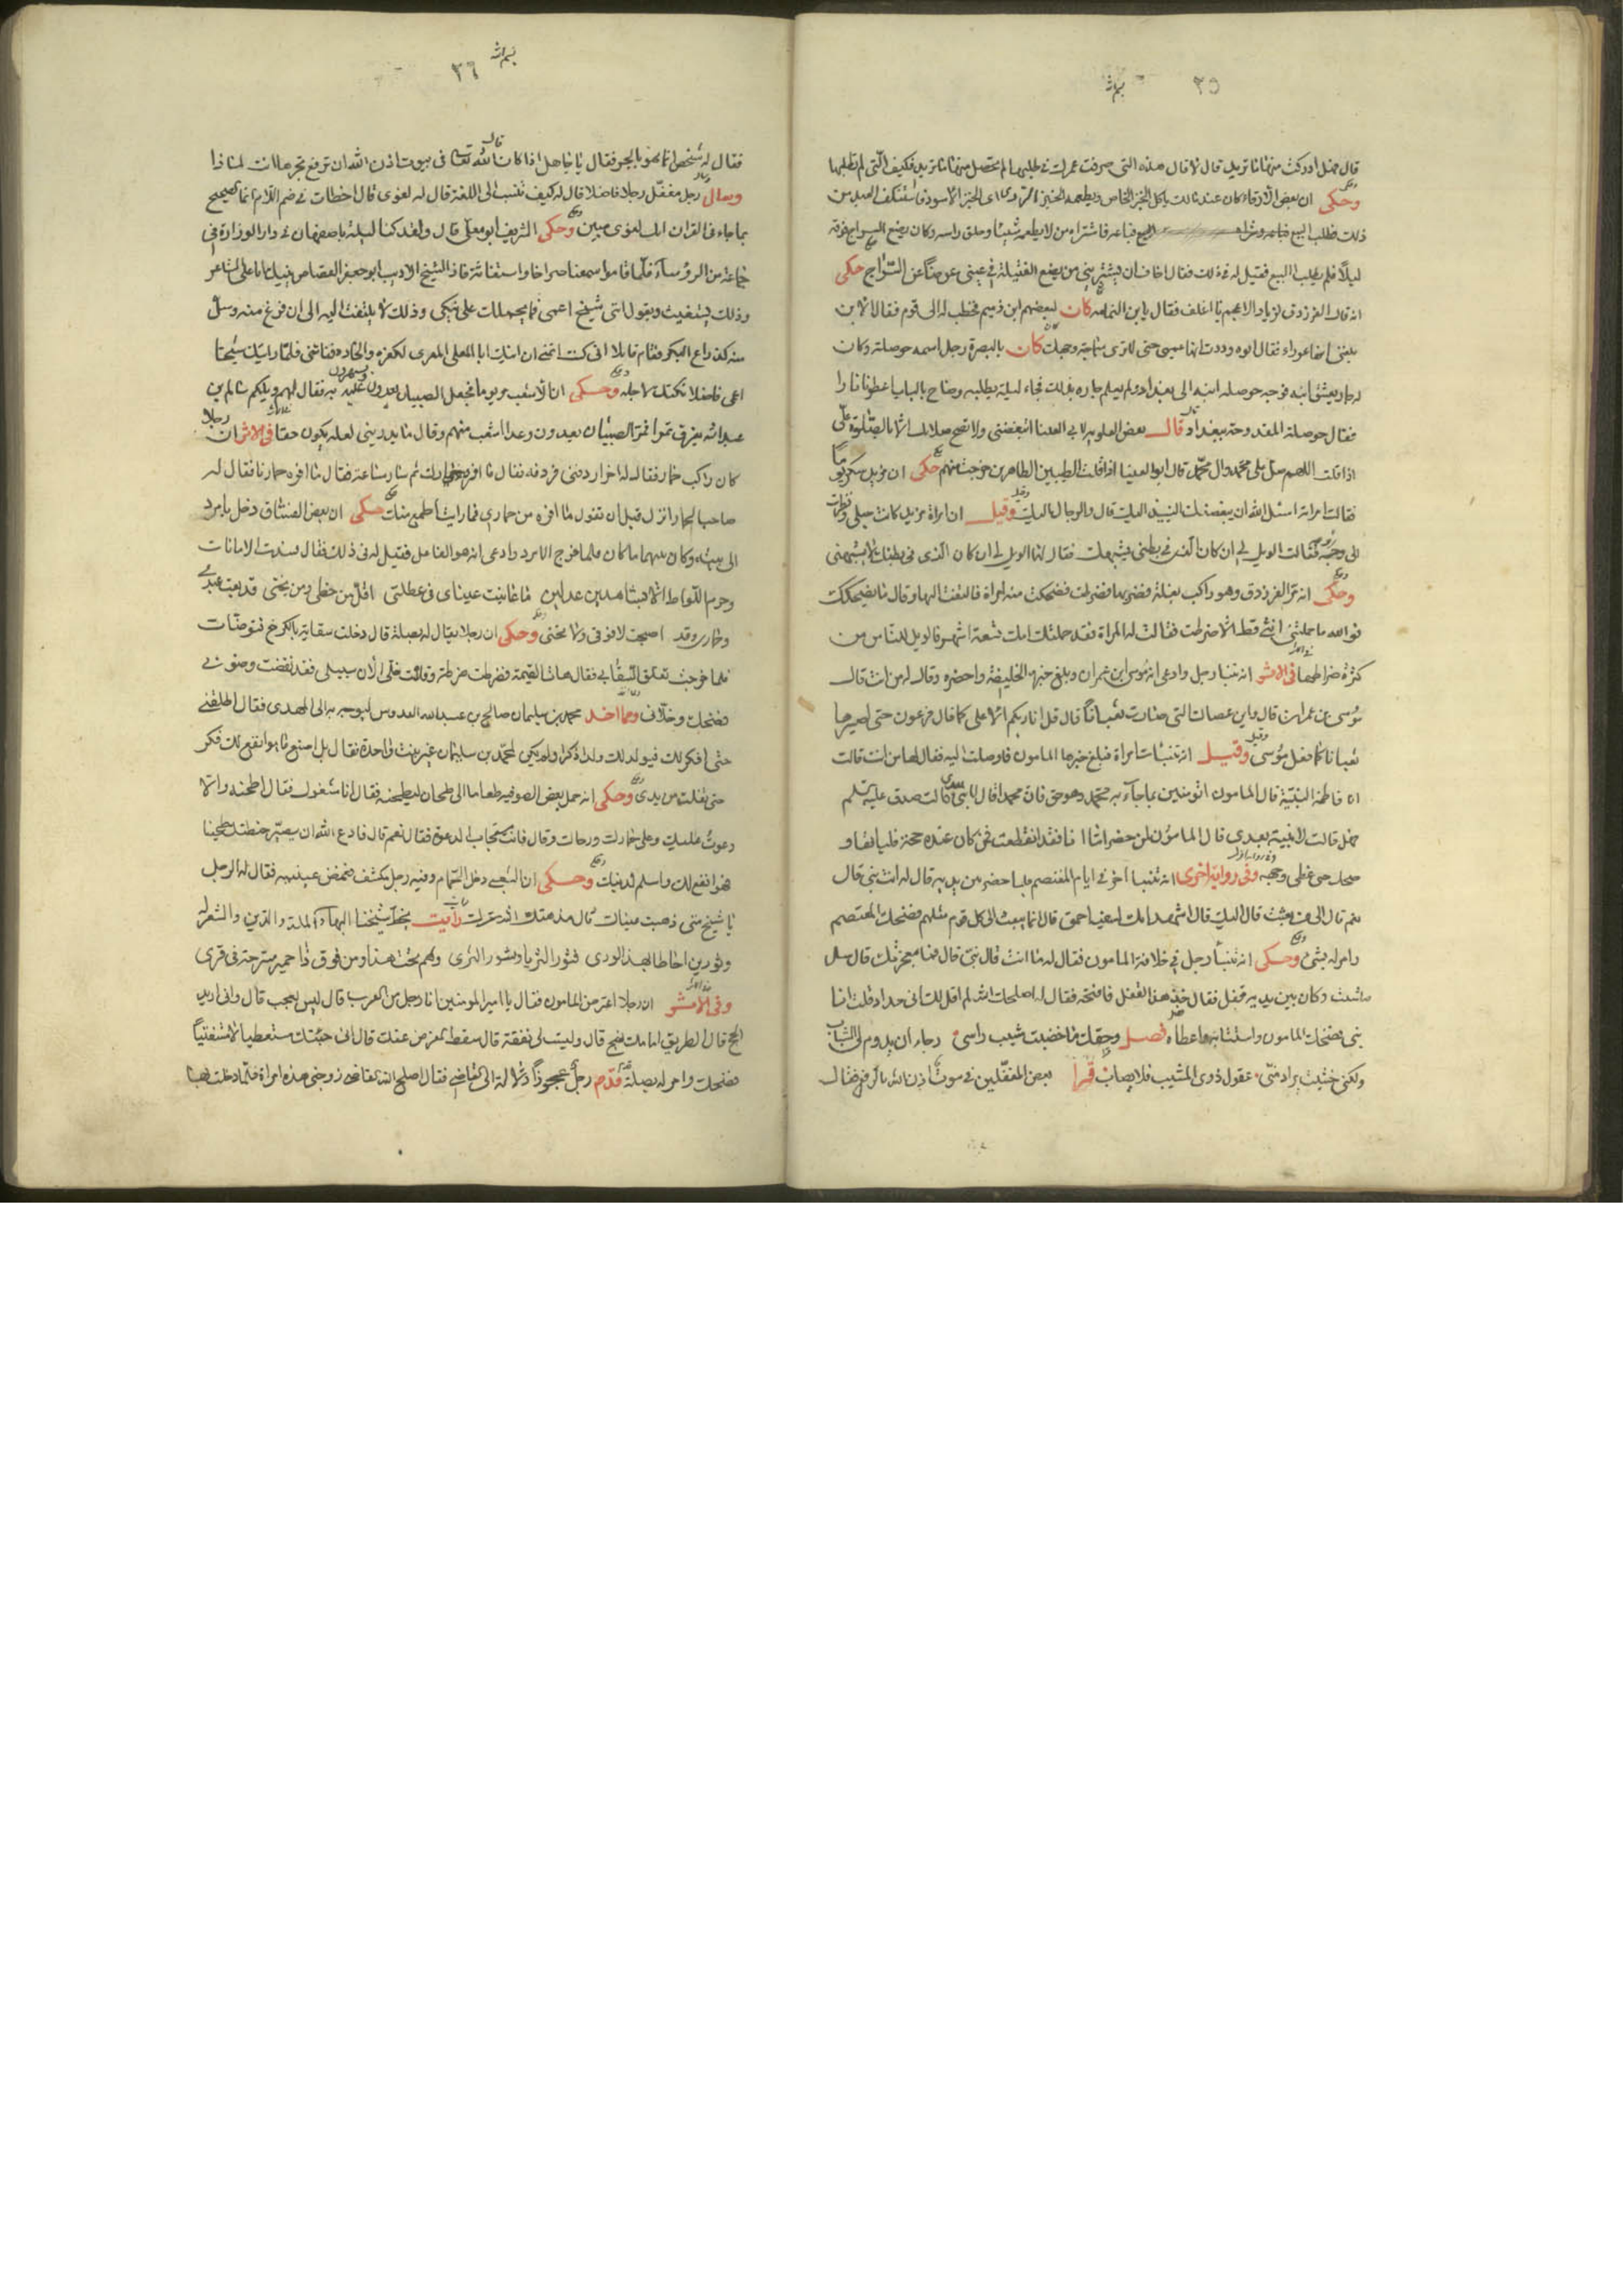 ٣٥
قال فهل ادركت منها ما تريد قال لا قال هذه التى صرفت عمرك فى طلبها لم تحصل منها ما تريد فكيف التى لم تطلبها
وحكى ان بعض الارقاء كان عند مالك ياكل الخبز الخاص ويطعمه الخبز الاسود فاستنكف العبد من
ذلك فطلب البيع فباعه فاشتراه من لا يطعمه شيئا وحلق راسه وكان يضع السراج فوقه
ليلا فلم يطلب البيع فقيل له فى ذلك فقال اخاف ان يشترينى من يضع الفتيلة فى عينى عوضا عن السراج حكى
انه قال الفرزدق لزياد الاعجم يا اغلف فقال يا بن النمامه كان لبعضهم ابن دميم فخطب له الى قوم فقال الابن
بلغنى انها عوراء فقال ابوه وددت انها عمياء حتى لا ترى سماجة وجهك كان بالبصرة رجل اسمه حوصلة وكان
له جار يعشق ابنه فوجه حوصله ابنه الى بغداد ولم يعلم جاره بذلك فجاء ليلة يطلبه وصاح بالباب اعطونا نارا
فقال حوصلة المقدحة ببغداد قال بعض العلويه لابى العينا اتبغضنى ولا تصح صلاتك الا بالصلوة على
اذا قلت اللهم صل على محمد وال محمد قال ابو العينا اذا قلت الطيبين الطاهرين خرجت منهم حكى ان مزيد سكر يوما
فقالت امراته اسئل الله ان يبغض اليك النبيذ اليك قال والدجال اليك وقيل ان امراة مزيد كانت حبلى ونظرت
الى وجهه فقالت الويل لى ان كان الذى فى بطنى يشبهك فقال لها الويل لى ان كان الذى فى بطنك لا يشبهنى
وحكى انه مر الفرزدق وهو راكب بغلة فضربها فضرطت فضحكت منه امراة فالتفت اليها وقال ما يضحكك
فوالله ما حملتنى انثى قط الا ضرطت فقالت له المراة فقد حملتك امك تسعة اشهر فالويل للناس من
كثرة ضراطها فى الاثر انه تنبا رجل وادعى انه موسى ابن عمران وبلغ خبره الخليفة واحضره وقال له من انت قال
موسى بن عمران قال واين عصاك التى صارت ثعبانا قال قل انا ربكم الاعلى كما قال فرعون حتى اصيرها
ثعبانا كما فعل موسى وقيل انه تنبات امراة فبلغ خبرها المامون فاوصلت اليه فقال لها من انت قالت
انا فاطمة النبية قال المامون اتؤمنين بما جاء به محمد وهو حق فان محمدا قال لا نبى بعدى قالت صدق عليه السلم
فهل قال لا نبية بعدى قال المامون لمن حضر اما انا فقد انقطعت فمن كان عنده حجة فليات بها و
ضحك حتى غطى وجهه وفى رواية اخرى انه تنبا آخر فى ايام المعتصم فلما حضر بين يديه قال له انت نبى قال
نعم قال الى من بعثت قال اليك قال اشهد انك لسفيه احمق قال انما يبعث الى كل قوم مثلهم فضحك المعتصم
وامر له بشئ وحكى انه تنبأ رجل فى خلافة المامون فقال له ما انت قال نبى قال فما معجزتك قال سل
ما شئت وكان بين يديه قفل فقال خذ هذا القفل فافتحه فقال له اصلحك الله لم اقل لك انى حداد قلت انا
نبى فضحك المامون واستتابه واعطاه فصل وحقك ما خضبت مشيب راسى رجاء ان يدوم لى الشباب
ولكنى خشيت يراد منى عقول ذوى المشيب فلا يصاب قرا بعض المغفلين فى بيوت اذن الله بالرفع فقال
٣٦
فقال له شخص انما هو بالجر فقال يا جاهل اذا كان الله تعالى قال فى بيوت اذن الله ان ترفع تجرها انت لماذا
وسال رجل مغفل رجلا فاضلا قال له كيف تنسب الى اللغة قال له لغوى قال اخطات فى ضم اللام انما الصحيح
ما جاء فى القران انك لغوى مبين وحكى الشريف ابو يعلى قال ولقد كنا ليلة باصفهان فى دار الوزارة فى
جماعة من الرؤساء فلما ناموا سمعنا صراخا واستغاثة فاذا الشيخ الاديب ابو جعفر القصاص ينيك ابا على الشاعر
وذلك يستغيث ويقول اننى شيخ اعمى فما يحملك على نيكى وذلك لا يلتفت اليه الى ان فرغ منه وسل
منه كذراع البكر وقام قايلا انى كنت اتمنى ان انيك ابا العلى المعرى لكفره والحاده ففاتنى فلما رايتك شيخا
اعمى فاضلا نكتك لاجله وحكى ان الاشعب مر يوما فجعل الصبيان يعبثون به فقال لهم ويلكم سالم بن
عبد الله يفرق تمرا فمر الصبيان يعدون وعدا اشعب معهم وقال ما يدرينى لعله يكون حقا فى الاثر ان رجلا
كان راكب حمار فقال له اخر اردفنى فردفه فقال ما افره حمارك ثم سار ساعة فقال ما افره حمارنا فقال له
صاحب الحمار انزل قبل ان تقول ما افره من حمارى فما رايت اطمع منك حكى ان بعض الفساق دخل بامرد
الى بيته وكان بينهما ما كان فلما خرج الامرد وادعى انه هو الفاعل فقيل له فى ذلك فقال فسدت الامانات
وحرم اللواط الا بشاهدين عدلين ما عاينت عيناى فى عطلتى اقل من حظى ومن بختى قد بعت عبدى
وحمارى وقد اصبحت لا فوقى ولا تحتى وحكى ان رجلا يقال له بصيلة قال دخلت سقاية بالكرخ فتوضات
فلما خرجت تعلق السقا بى فقال هات القيمة فضرطت ضرطة وقلت خل الان سبيلى فقد نقضت وضوئى
فضحك وخلانى ومما اخذ محمد بن سليمان صالح بن عبد الله القدوس ليوجه به الى المهدى فقال اطلقنى
حتى افكر لك فيولد لك ولد ذكر ولم يكن لمحمد بن سليمان غير بنت واحدة فقال بل اصنع ما هو انفع لك فكر
حتى تفلت من يدى وحكى انه حمل بعض الصوفيه طعاما الى طحان ليطحنه فقال انا مشغول فقال اطحنه والا
دعوت عليك وعلى حمارك ورحاك وقال فانت مجاب الدعوة فقال نعم قال فادع الله ان يصير حنطتك دقيقا
فهو انفع لك واسلم لدينك وحكى ان الشعبى دخل الحمام وفيه رجل مكشف فغمض عينيه فقال له الرجل
يا شيخ متى ذهبت عيناك قال منذ هتك الله سترك رايت بخط شيخنا البهاء الملة والدين والشعر له
وثورين احاطا بهذا الورى فثور الثريا وثور الثرى وهم تحت هذا ومن فوق ذا حمير مسرجة فى قرى
وفى الاثر ان رجلا اعترض المامون فقال يا امير المومنين انا رجل من العرب قال ليس بعجب قال وانى اريد
الحج قال الطريق امامك فحج قال وليست لى نفقة قال سقط الفرض عنك قال انى جئتك مستعطيا لا مستفتيا
فضحك وامر له بصلة قدم رجل عجوزا دلالة الى القاضى فقال اصلح الله القاضى زوجنى هذه امراة فلما دخلت بها